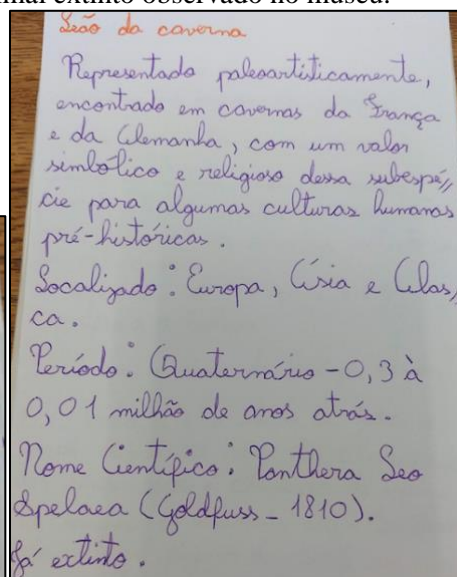 mal extinto observado no museu.
Leão da caverna
Representado paleoartisticamente,
encontrado em cavernas da França
e da Alemanha, com um valor
simbólico e religioso dessa subespé//
cie para algumas culturas humanas
pré-históricas.
Localizado: Europa, Ásia e Alas//
ca.
Período: Quaternário - 0,3 à
0,01 milhão de anos atrás.
Nome Científico: Panthera Leo
Spelaea (Goldfuss - 1810).
Já extinto.